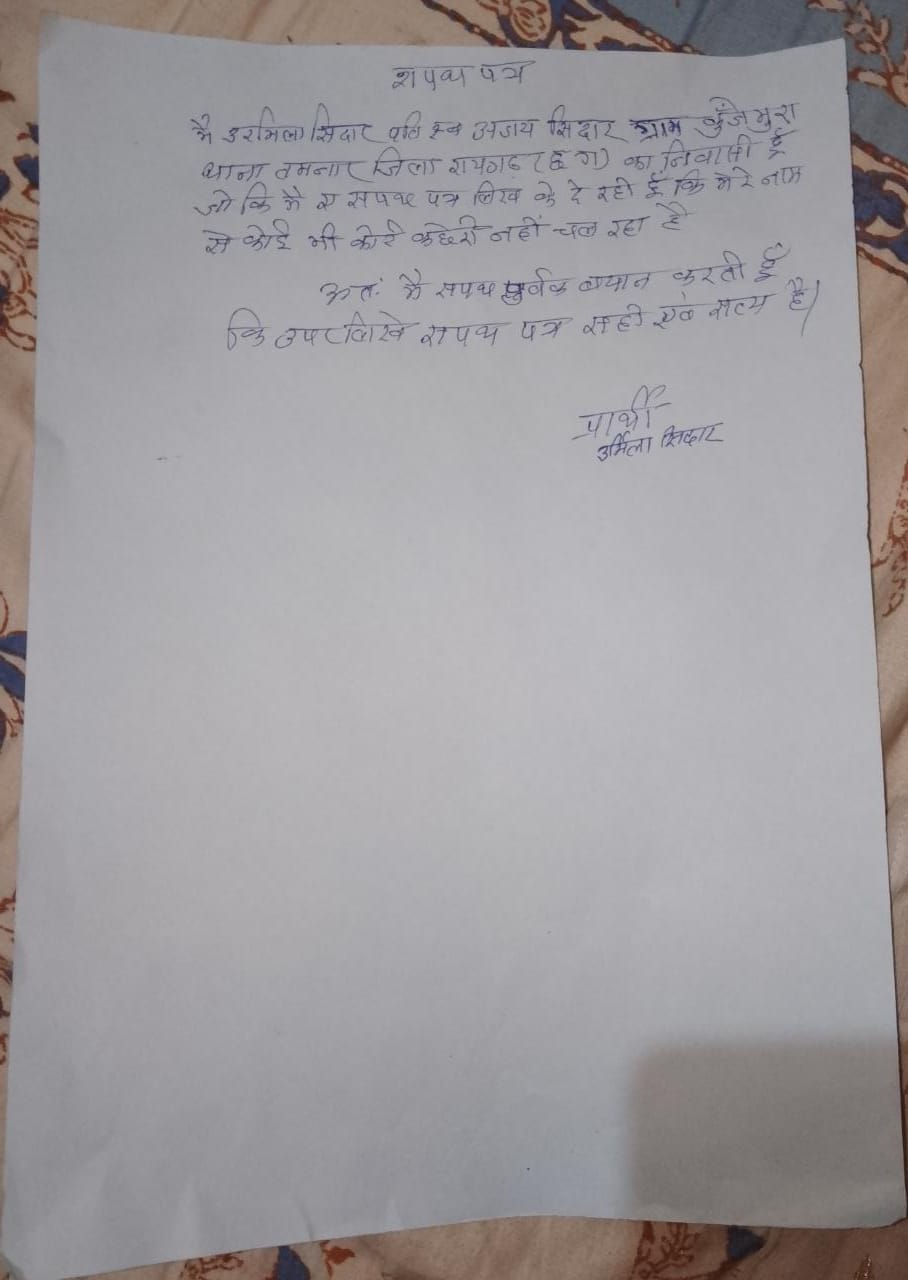 शपथ पत्र
मै उरमिला सिदार पति स्व अजय सिदार ग्राम कुँजेमुरा
थाना तमनार जिला रायगढ़ (छ ग) का निवासी हूँ
जो कि मै ए सपथ पत्र लिख के दे रही हूँ कि मेरे नाम
से कोई भी कोर्ट कछेरी नहीं चल रहा है
अतः मै सपथ पुर्वक बयान करती हूँ
कि उपर लिखे सपथ पत्र सही एवं सत्य है।
प्रार्थी
उर्मिला सिदार